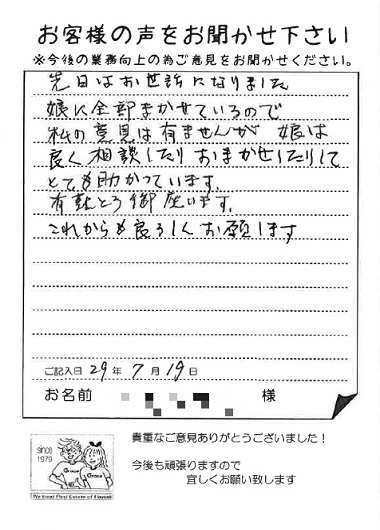 お客様の声をお聞かせ下さい
※今後の業務向上の為ご意見をお聞かせください。
先日はお世話になりました
娘に全部まかせているので
私の意見は有ませんが 娘は
良く相談したりおまかせしたりして
とても助かっています。
有難とう御座います。
これからも良ろしくお願します
ご記入日 29年 7月 19日
お名前 様
貴重なご意見ありがとうございました!
今後も頑張りますので
宜しくお願い致します
since
1979